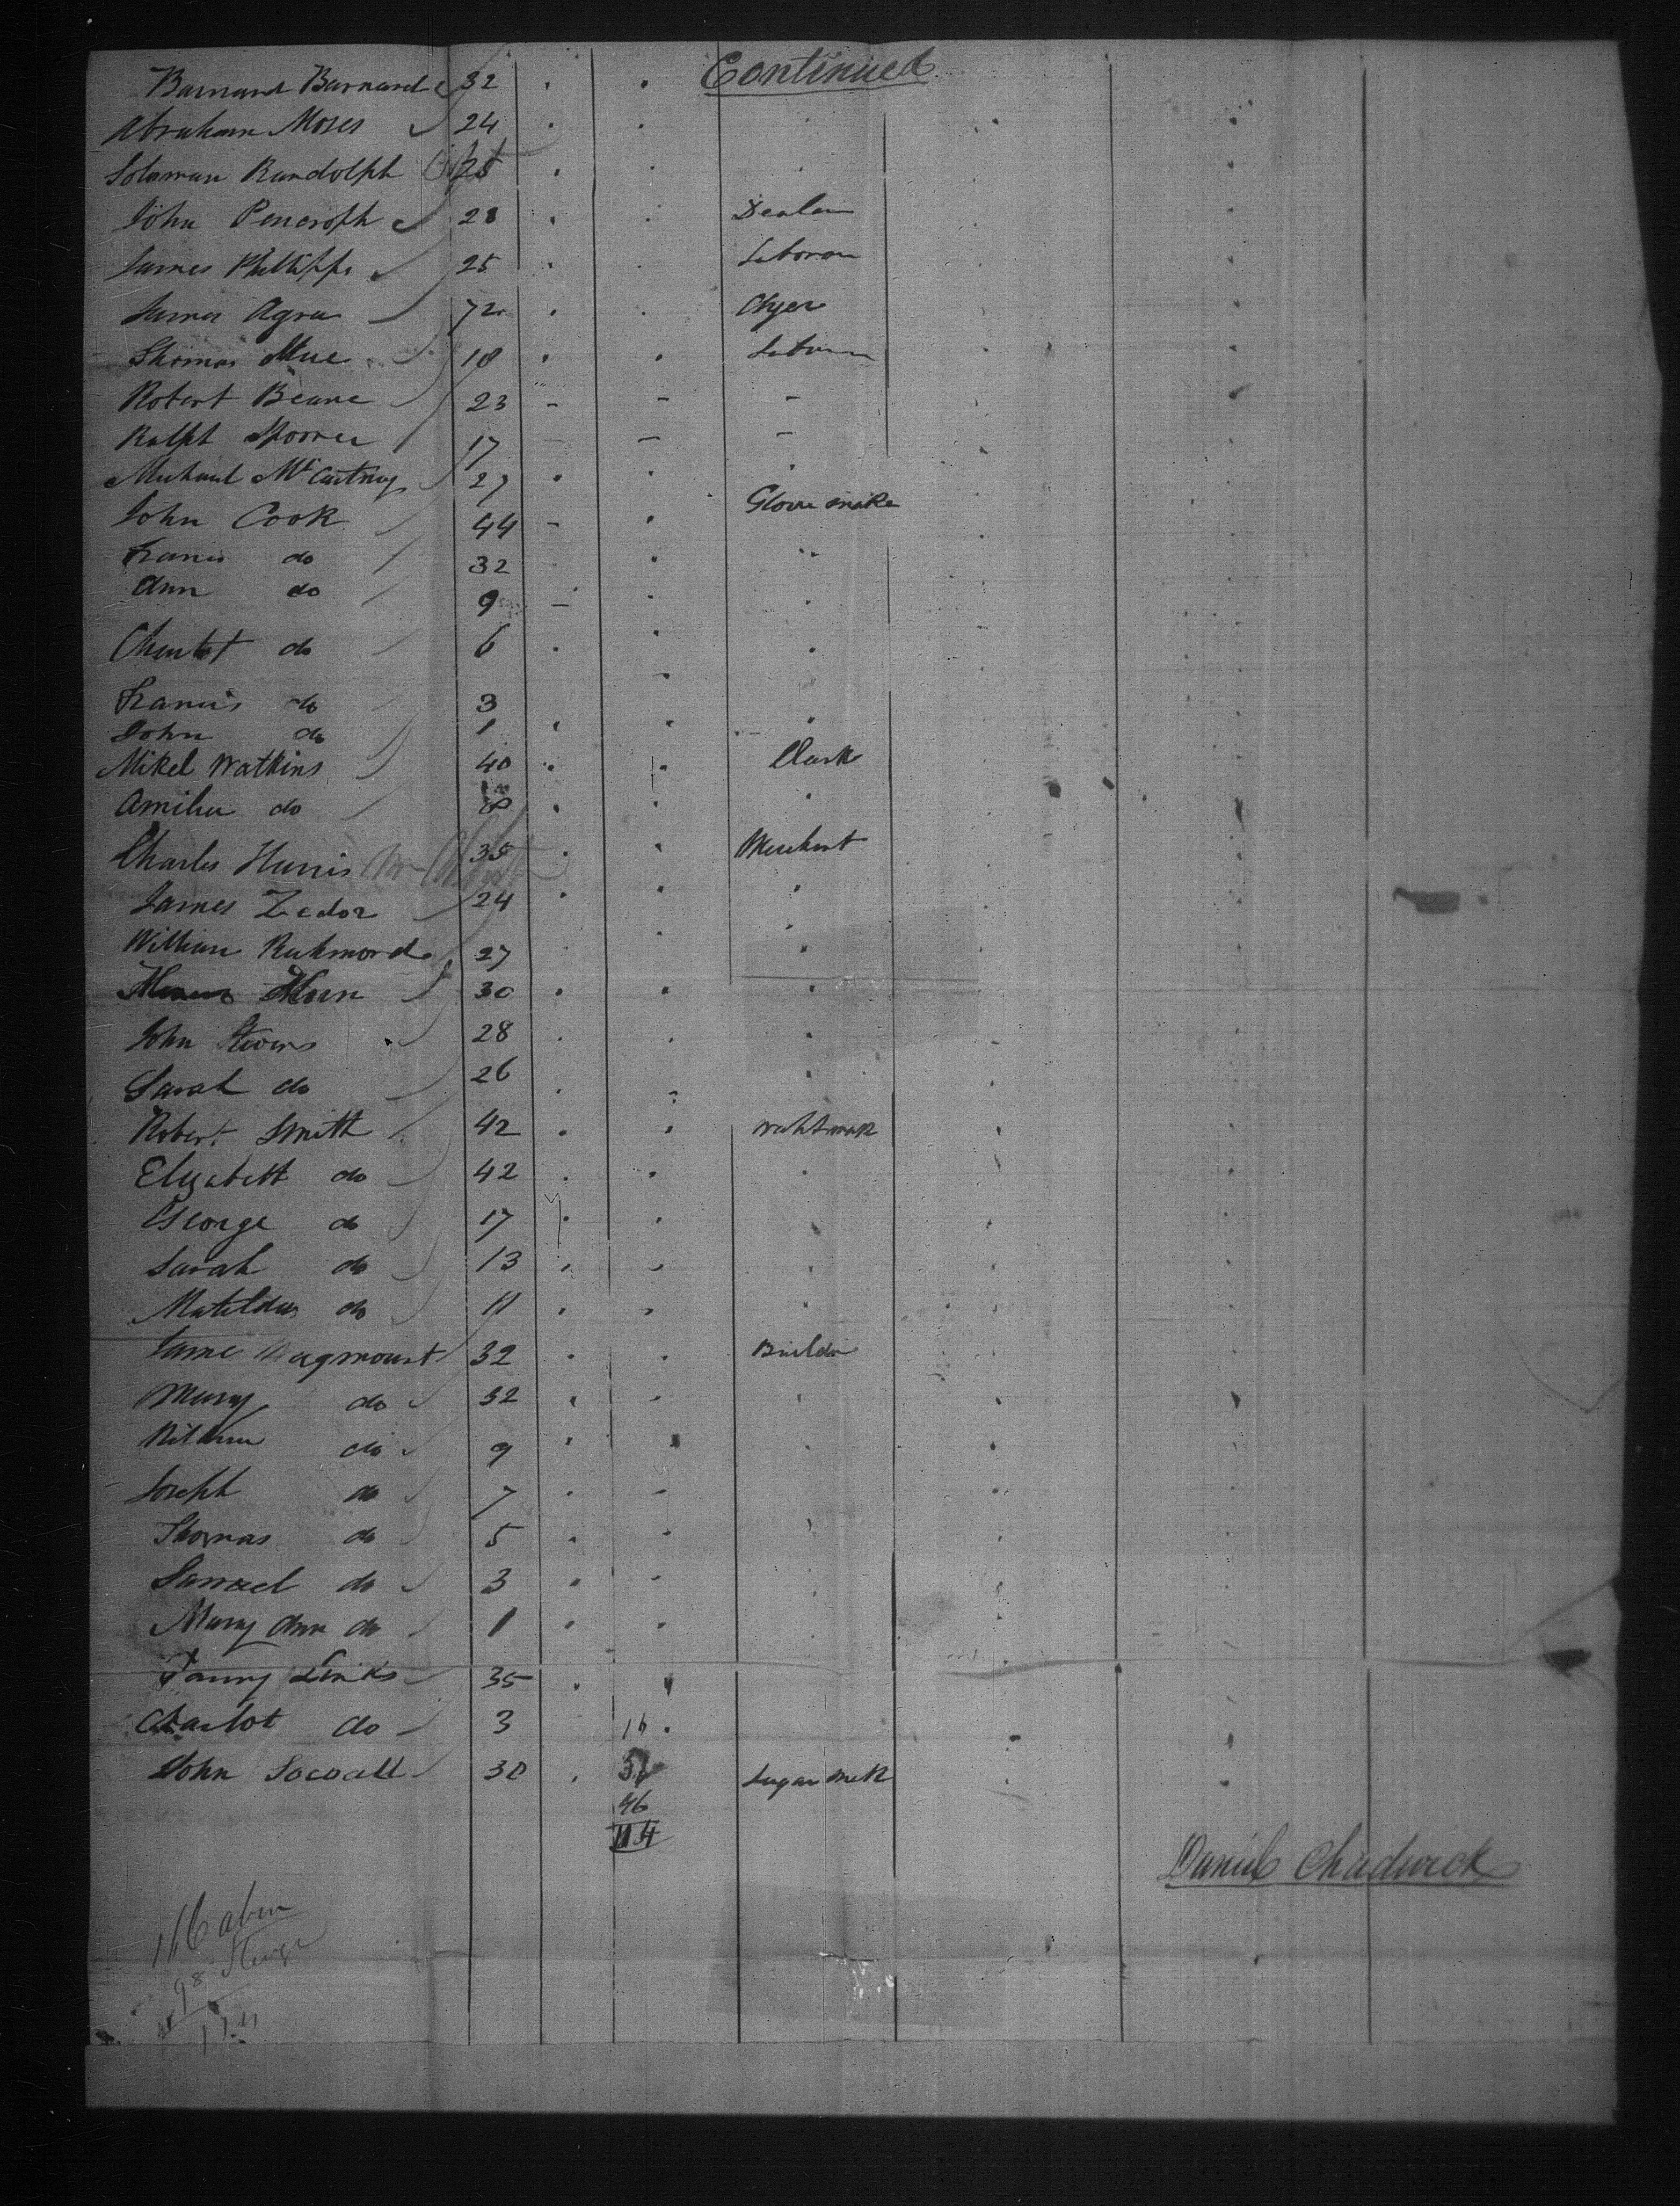 Continued
Barnard Barnard 32
Abraham Moses 24
Soloman Randolph 25
John Pencroph 28 Dealer
James Phillipps 25 Laborer
James Agru 72 Dyer
Thomas Mue 18 Laborer
Robert Beane 23 - - -
Ralph Spooner 17 - - -
Michael McCartney 27
John Cook 44 - Glove make
Francis do 32
Ann do 9 -
Charlot do 6
Francis do 3
John do 1
Mikel Watkins 40 Clark
Amilia do
Charles Harris 35 Merchant
James Zedor 24
William Richmond 27
Horn 30
John Stevens 28
Sarah do 26
Robert Smith 42 Wahtmak
Elizabeth do 42
George do 17
Sarah do 13
Matilda do 11
Jame 32 Builder
Mary do 32
William do 9
Joseph do 7
Thomas do 5
Samuel do 3
Mary Ann do 1
Fanny Links 35
Charlot do 3
16
John Socoall 30 Sugar mak
46
114
Daniel Chadwick
16 Cabin
98 Steerge
114